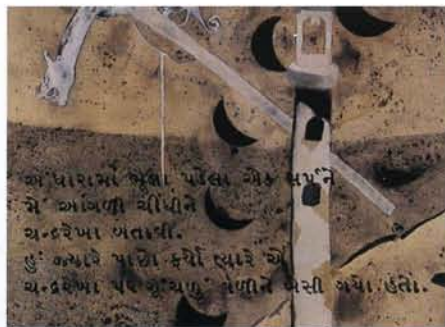 અંધારામાં ભૂલા પડેલા એક સર્પને
મેં આંગળી ચીંધીને
ચન્દ્રરેખા બતાવી.
હું જ્યારે પાછો ફર્યો ત્યારે એ
ચન્દ્રરેખા પર ગૂંચળું વળીને બેસી ગયો હતો.